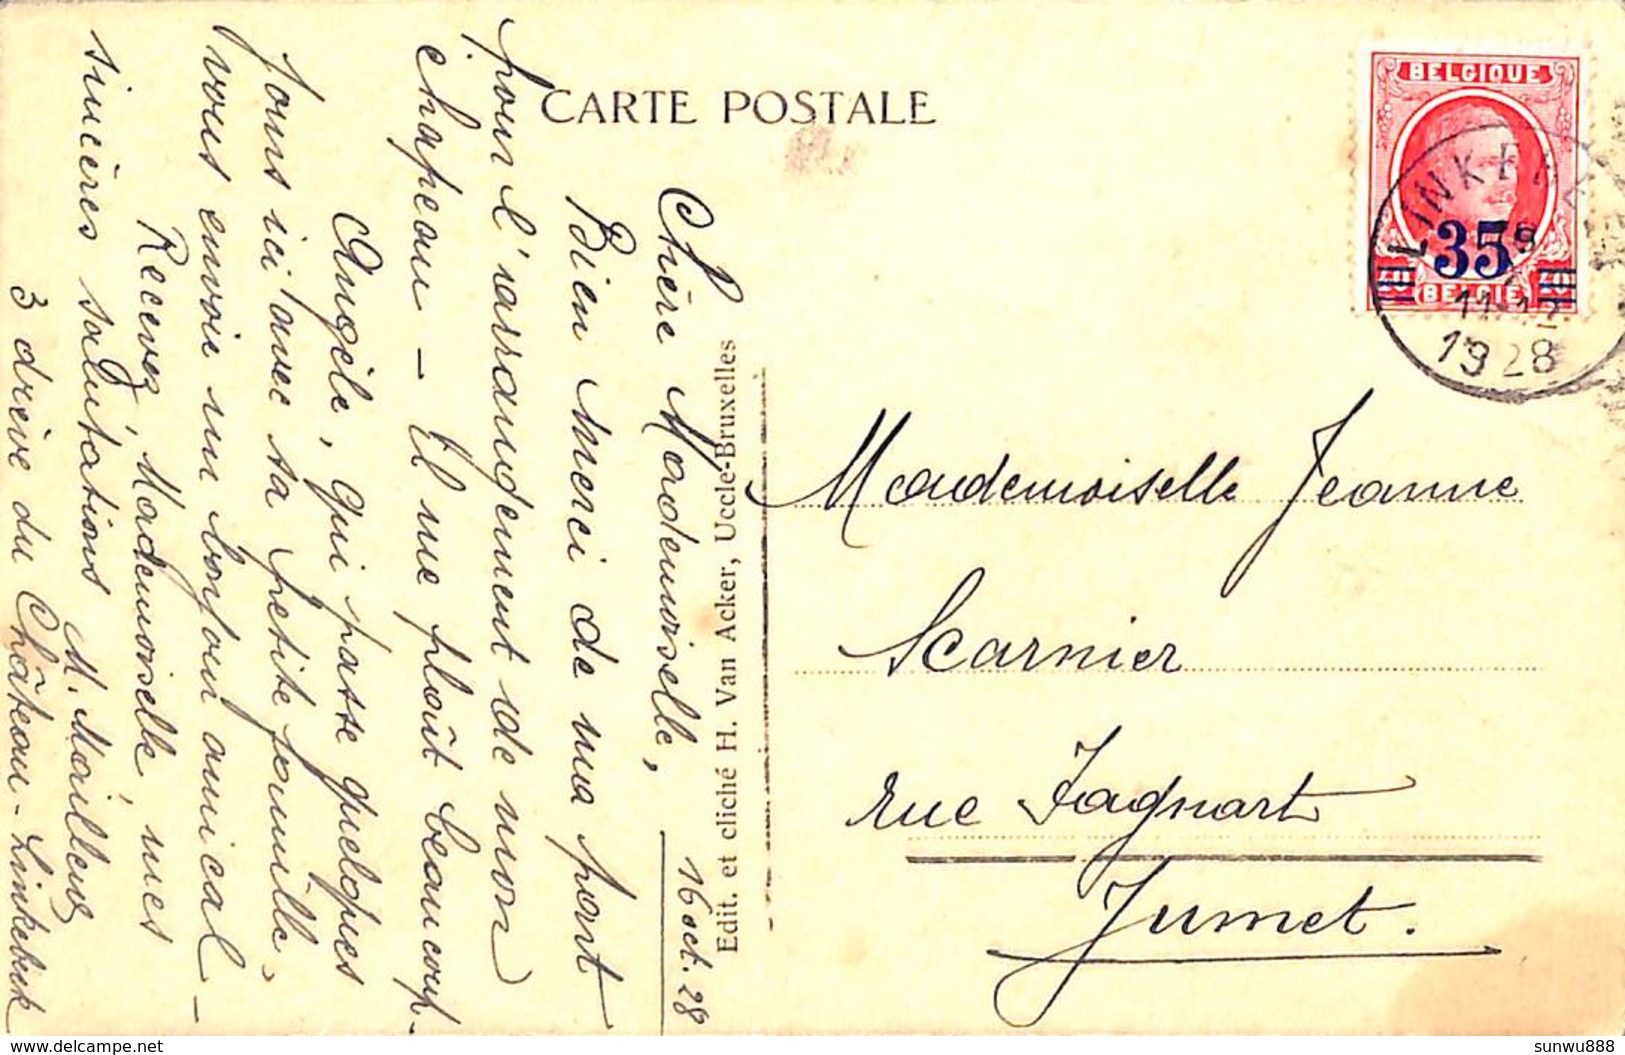 CARTE POSTALE
16 oct. 28
Chère Mademoiselle,
Bien merci de ma part
pour l'arrangement de mon
chapeau - Il me plaît beaucoup.
Angèle, qui passe quelques
jours ici avec sa petite famille
vous envoie un bonjour amical -
Recevez, Mademoiselle, mes
sincères salutations M.
3 drève du Château - Linkebeek
Edit. et cliché H. Van Acker, Uccle-Bruxelles
BELGIQUE
35
BELGIË
LINKEBEEK
11-12
1928
Mademoiselle Jeanne
Scarnier
rue Fagnart
Jumet.
www.delcampe.net
sunwu888